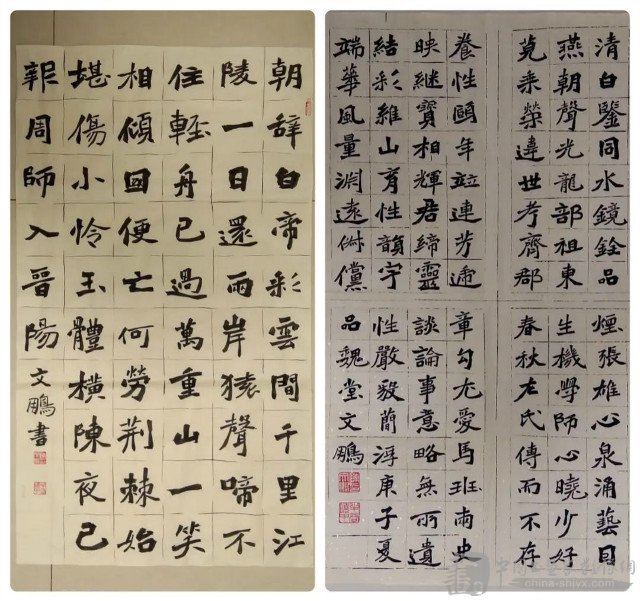 朝辞白帝彩雲間千里江
陵一日還兩岸猿聲啼不
住輕舟已過萬重山一笑
相傾國便亡何勞荆棘始
堪傷小怜玉體橫陳夜已
報周師入晉陽 文鵬書
清白鑒同水鏡銓品
燕朝聲光龍部祖東
莞乘榮達世考齊郡
養性頤年竝連芳遞
映繼寶相輝君締靈
結彩維山育性韻宇
端華風量淵遠俶儻
煙張雄心泉涌藝
生機學師心曉少好
春秋左氏傳而不存
章勾尤愛馬班兩史
談論事意略無所遺
性嚴毅簡淨庚子夏
品魏堂文鵬
china-shjyx.com